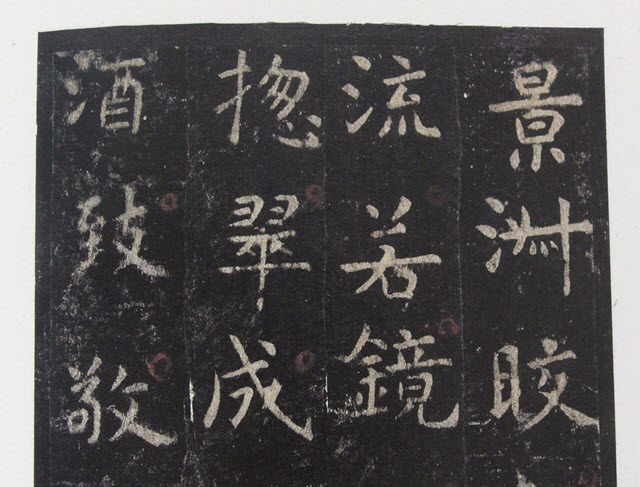 景晈
流若鏡
揔翠成
酒致敬